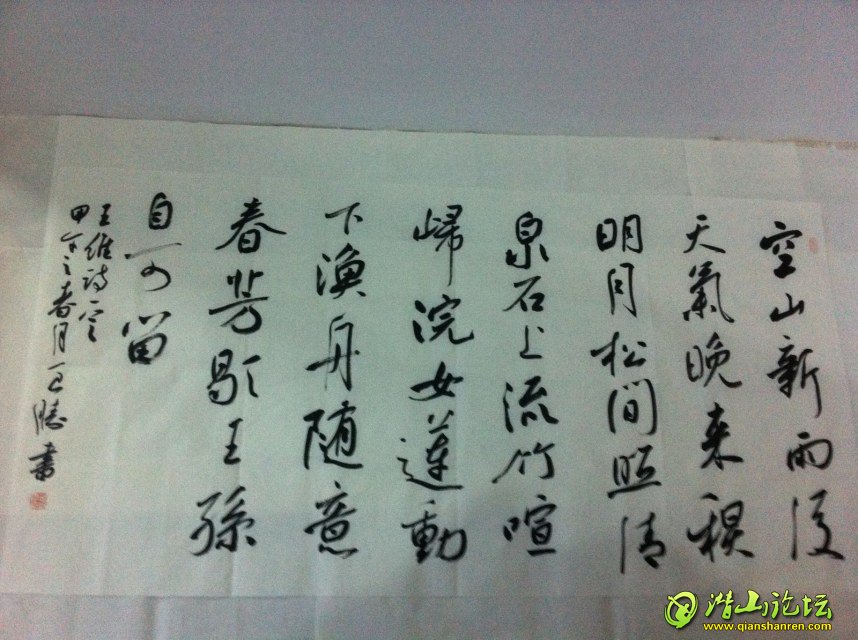 空山新雨後
天氣晚来秋
明月松间照清
泉石上流竹喧
歸浣女蓮動
下漁舟随意
春芳歇王孫
自可留
王维诗一
甲午之春月書
潜山论坛
www.qianshanren.com